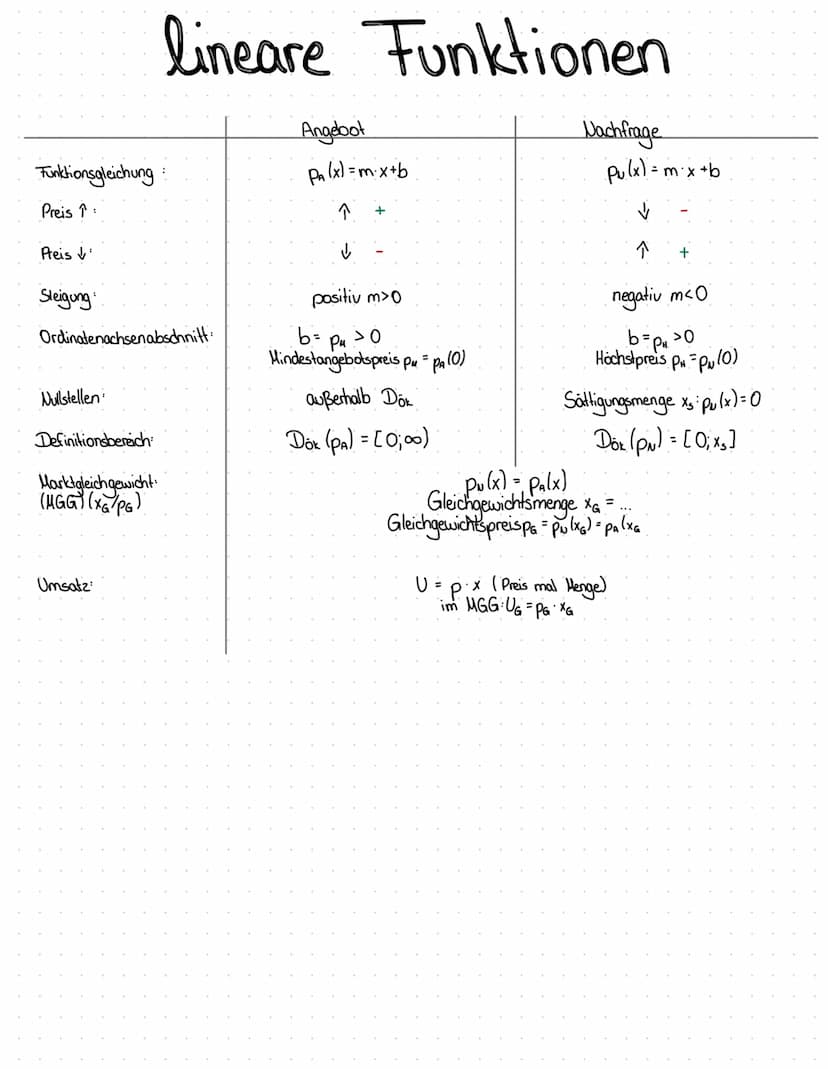 lineare Funktionen
Angebot Nachfrage
Funktionsgleichung: p_A(x)=m·x+b p_N(x)=m·x+b
Preis ↑: ↑ + ↓ -
Preis ↓: ↓ - ↑ +
Steigung: positiv m>0 negativ m<0
Ordinatenachsenabschnitt: b= p_M >0 b=p_H >0
Mindestangebotspreis p_M = p_A(0) Höchstpreis p_H = p_N(0)
Nullstellen: außerhalb D_ök Sättigungsmenge x_S: p_N(x)=0
Definitionsbereich: D_ök (p_A) = [0;∞) D_ök (p_N) = [0;x_S]
Marktgleichgewicht: p_N(x) = p_A(x)
(MGG) (x_G/p_G) Gleichgewichtsmenge x_G = ...
Gleichgewichtspreis p_G = p_N(x_G) = p_A(x_G
Umsatz: U = p·x (Preis mal Menge)
im MGG: U_G = p_G · x_G